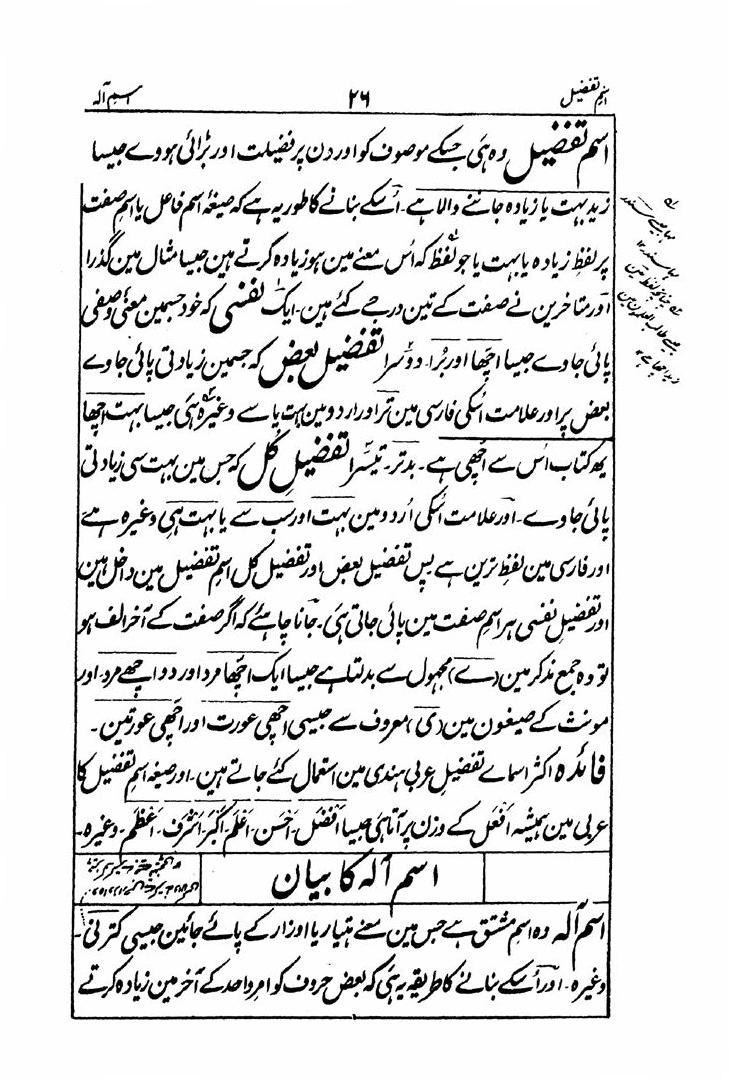 اسم تفضیل ۲۶ اسم آلہ
اسم تفضیل وہ ہی جسکے موصوف کو اوردن پر فضیلت اور بڑائی ہووے جیسا
زید بہت یا زیادہ جاننے والا ہے۔ اُسکے بنانے کا طور یہ ہے کہ صیغۂ اسم فاعل یا اسم صفت
پر لفظ زیادہ یا بہت یا جو لفظ کہ اُس معنے مین ہو زیادہ کرتے ہین جیسا مثال مین گذرا
اور متاخرین نے صفت کے تین درجے کئے ہین۔ ایک نفسی کہ خود جسمین معنیٔ وصفی
پائی جاوے جیسا اچھا اور بُرا۔ دوسرا تفضیل بعض کہ جسمین زیادتی پائی جاوے
بعض پر اور علامت اُسکی فارسی مین تر اور اردو مین بہت یا سے وغیرہ ہی جیسا بہت اچھا
یہ کتاب اُس سے اچھی ہے۔ بدتر۔ تیسرا تفضیلِ کُل کہ جس مین بہت سی زیادتی
پائی جاوے۔ اور علامت اُسکی اُردو مین بہت اور سب سے یا بہت ہی وغیرہ ہے
اور فارسی مین لفظِ ترین ہے پس تفضیل بعض اور تفضیل کل اسم تفضیل مین داخل ہین
اور تفضیل نفسی ہر اسم صفت مین پائی جاتی ہی۔ جاننا چاہئے کہ اگر صفت کے آخر الف ہو
تو وہ جمع مذکر مین (ے) مجہول سے بدلتا ہے جیسا ایک اچھا مرد اور دو اچھے مرد۔ اور
مونث کے صیغون مین (ی) معروف سے جیسی اچھی عورت اور اچھی عورتین۔
فائدہ اکثر اسمائے تفضیل عربی ہندی مین استعمال کئے جاتے ہین۔ اور صیغہ اسم تفضیل کا
عربی مین ہمیشہ اَفعَل کے وزن پر آتا ہی جیسا افضل۔ احسن۔ اعلم۔ اکبر۔ اشرف۔ اعظم۔ وغیرہ۔
اسم آلہ کا بیان
اسم آلہ وہ اسم مشتق ہے جس مین معنے ہتیار یا اوزار کے پائے جائین جیسی کترنی۔
وغیرہ۔ اور اُسکے بنانے کا طریقہ یہ ہی کہ بعض حروف کو امر واحد کے آخر مین زیادہ کرتے